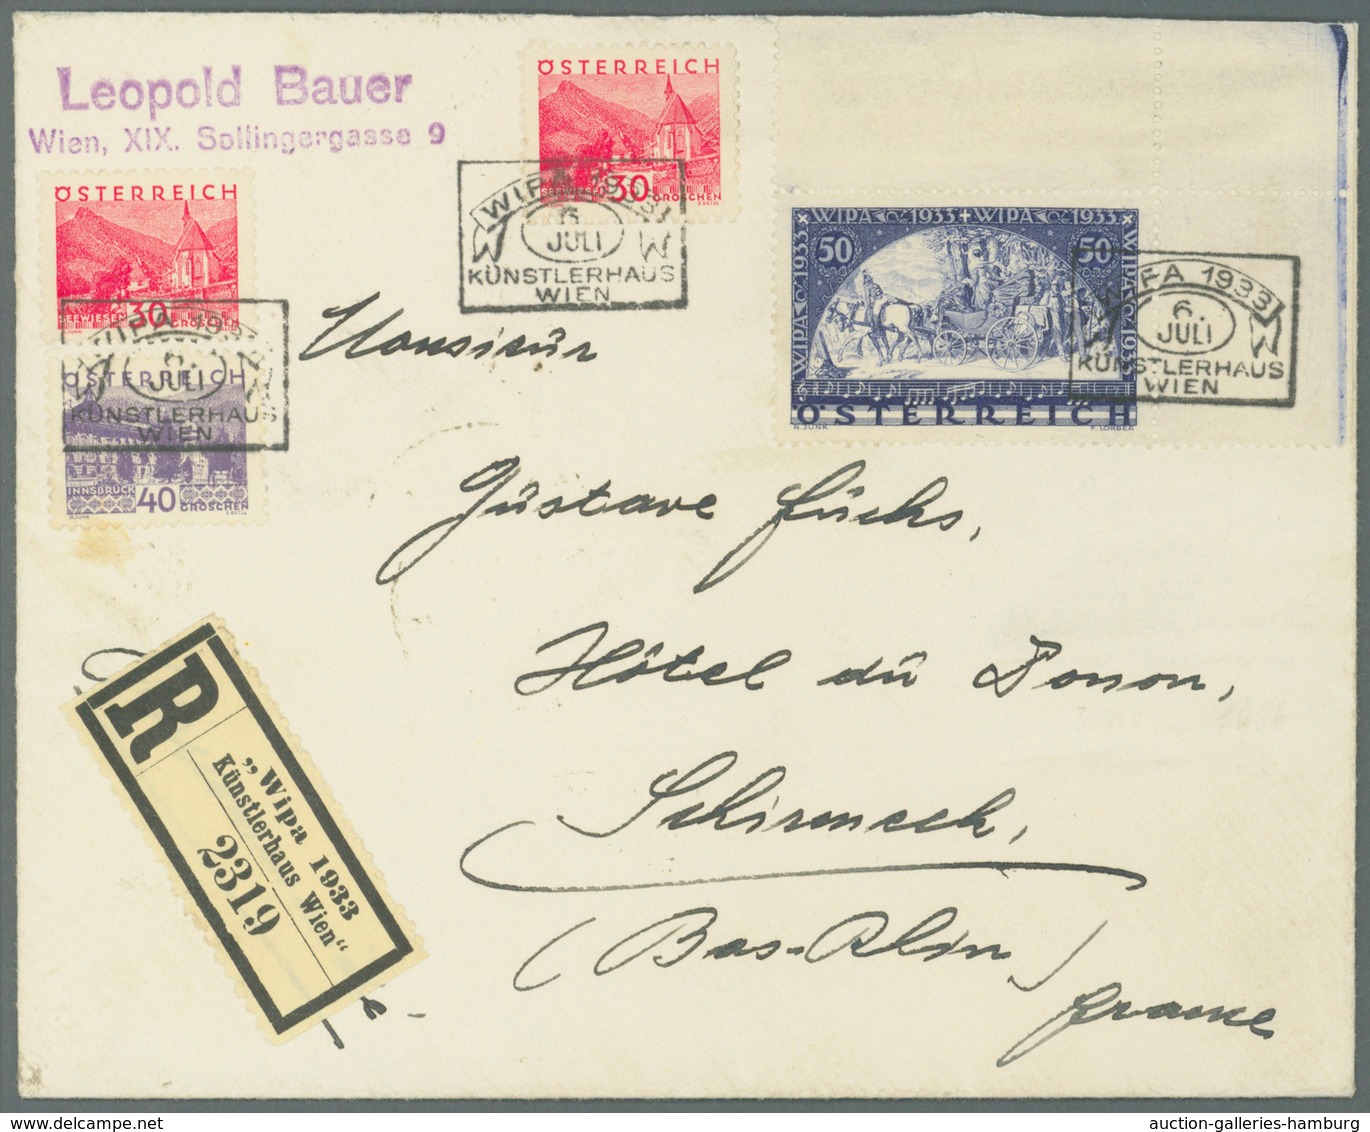 Leopold Bauer
Wien, XIX. Sollingergasse 9
ÖSTERREICH
30
GROSCHEN
WIPA 1933
6.
JULI
KÜNSTLERHAUS
WIEN
ÖSTERREICH
30
SEEWIESEN GROSCHEN
WIPA 1933
6.
JULI
KÜNSTLERHAUS
WIEN
ÖSTERREICH
INNSBRUCK 40 GROSCHEN
WIPA 1933 + WIPA 1933
WIPA 1933
WIPA 1933
50 50
ÖSTERREICH
R. JUNK F. LORBER
WIPA 1933
6.
JULI
KÜNSTLERHAUS
WIEN
Monsieur
Gustave Fuchs,
Hôtel du Donon,
Schirmeck,
(Bas-Rhin)
France
R
„Wipa 1933
Künstlerhaus Wien“
2319
auction-galleries-hamburg